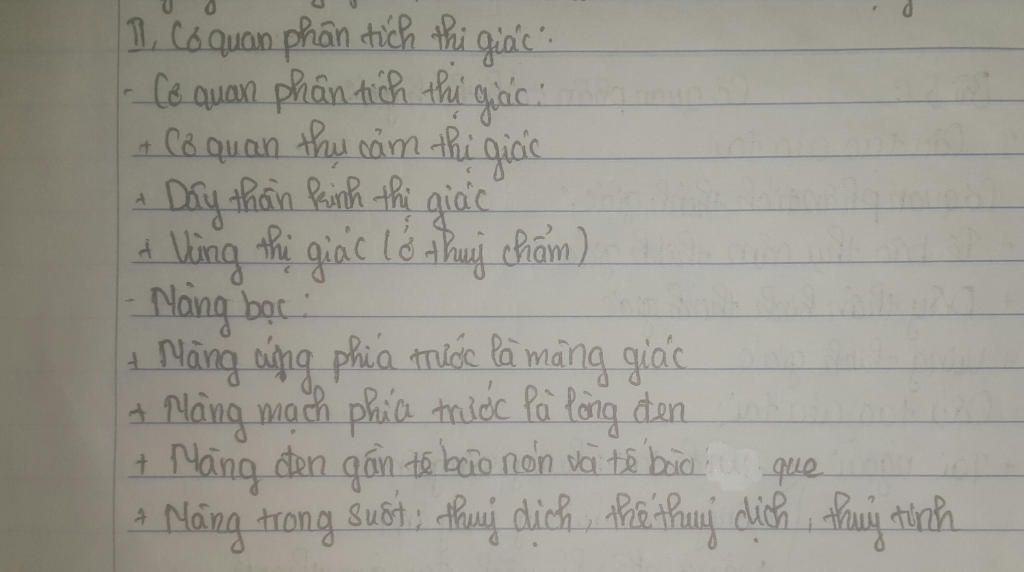 II, Cơ quan phân tích thị giác:
- Cơ quan phân tích thị giác:
+ Cơ quan thụ cảm thị giác
+ Dây thần kinh thị giác
+ Vùng thị giác (ở thuỳ chẩm)
- Màng bọc:
+ Màng cứng phía trước là màng giác
+ Màng mạch phía trước là lòng đen
+ Màng đen gần tế bào nón và tế bào que
+ Màng trong suốt: thuỷ dịch, thể thuỷ dịch, thuỷ tinh